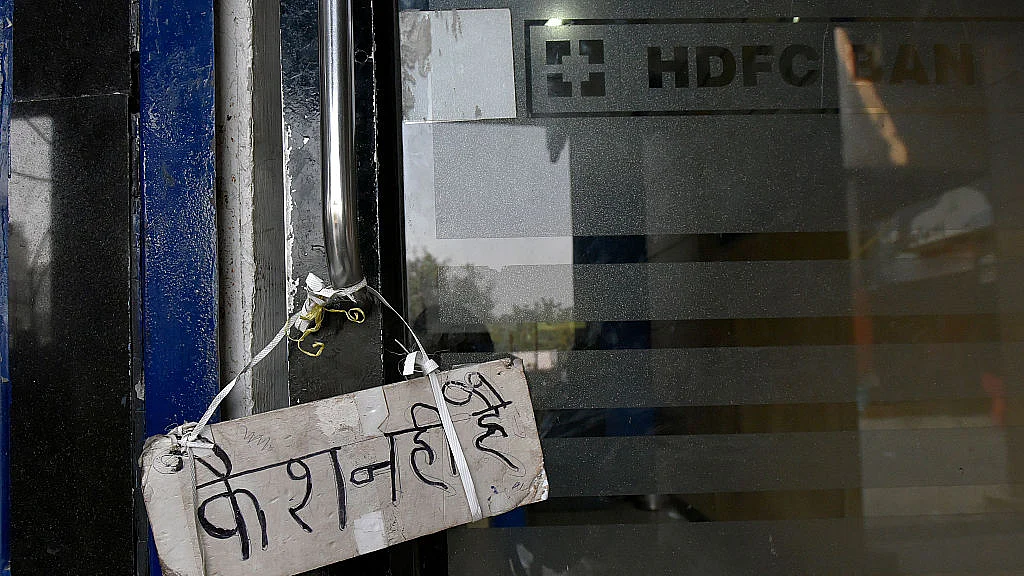 HDFC BAN
कैश नही